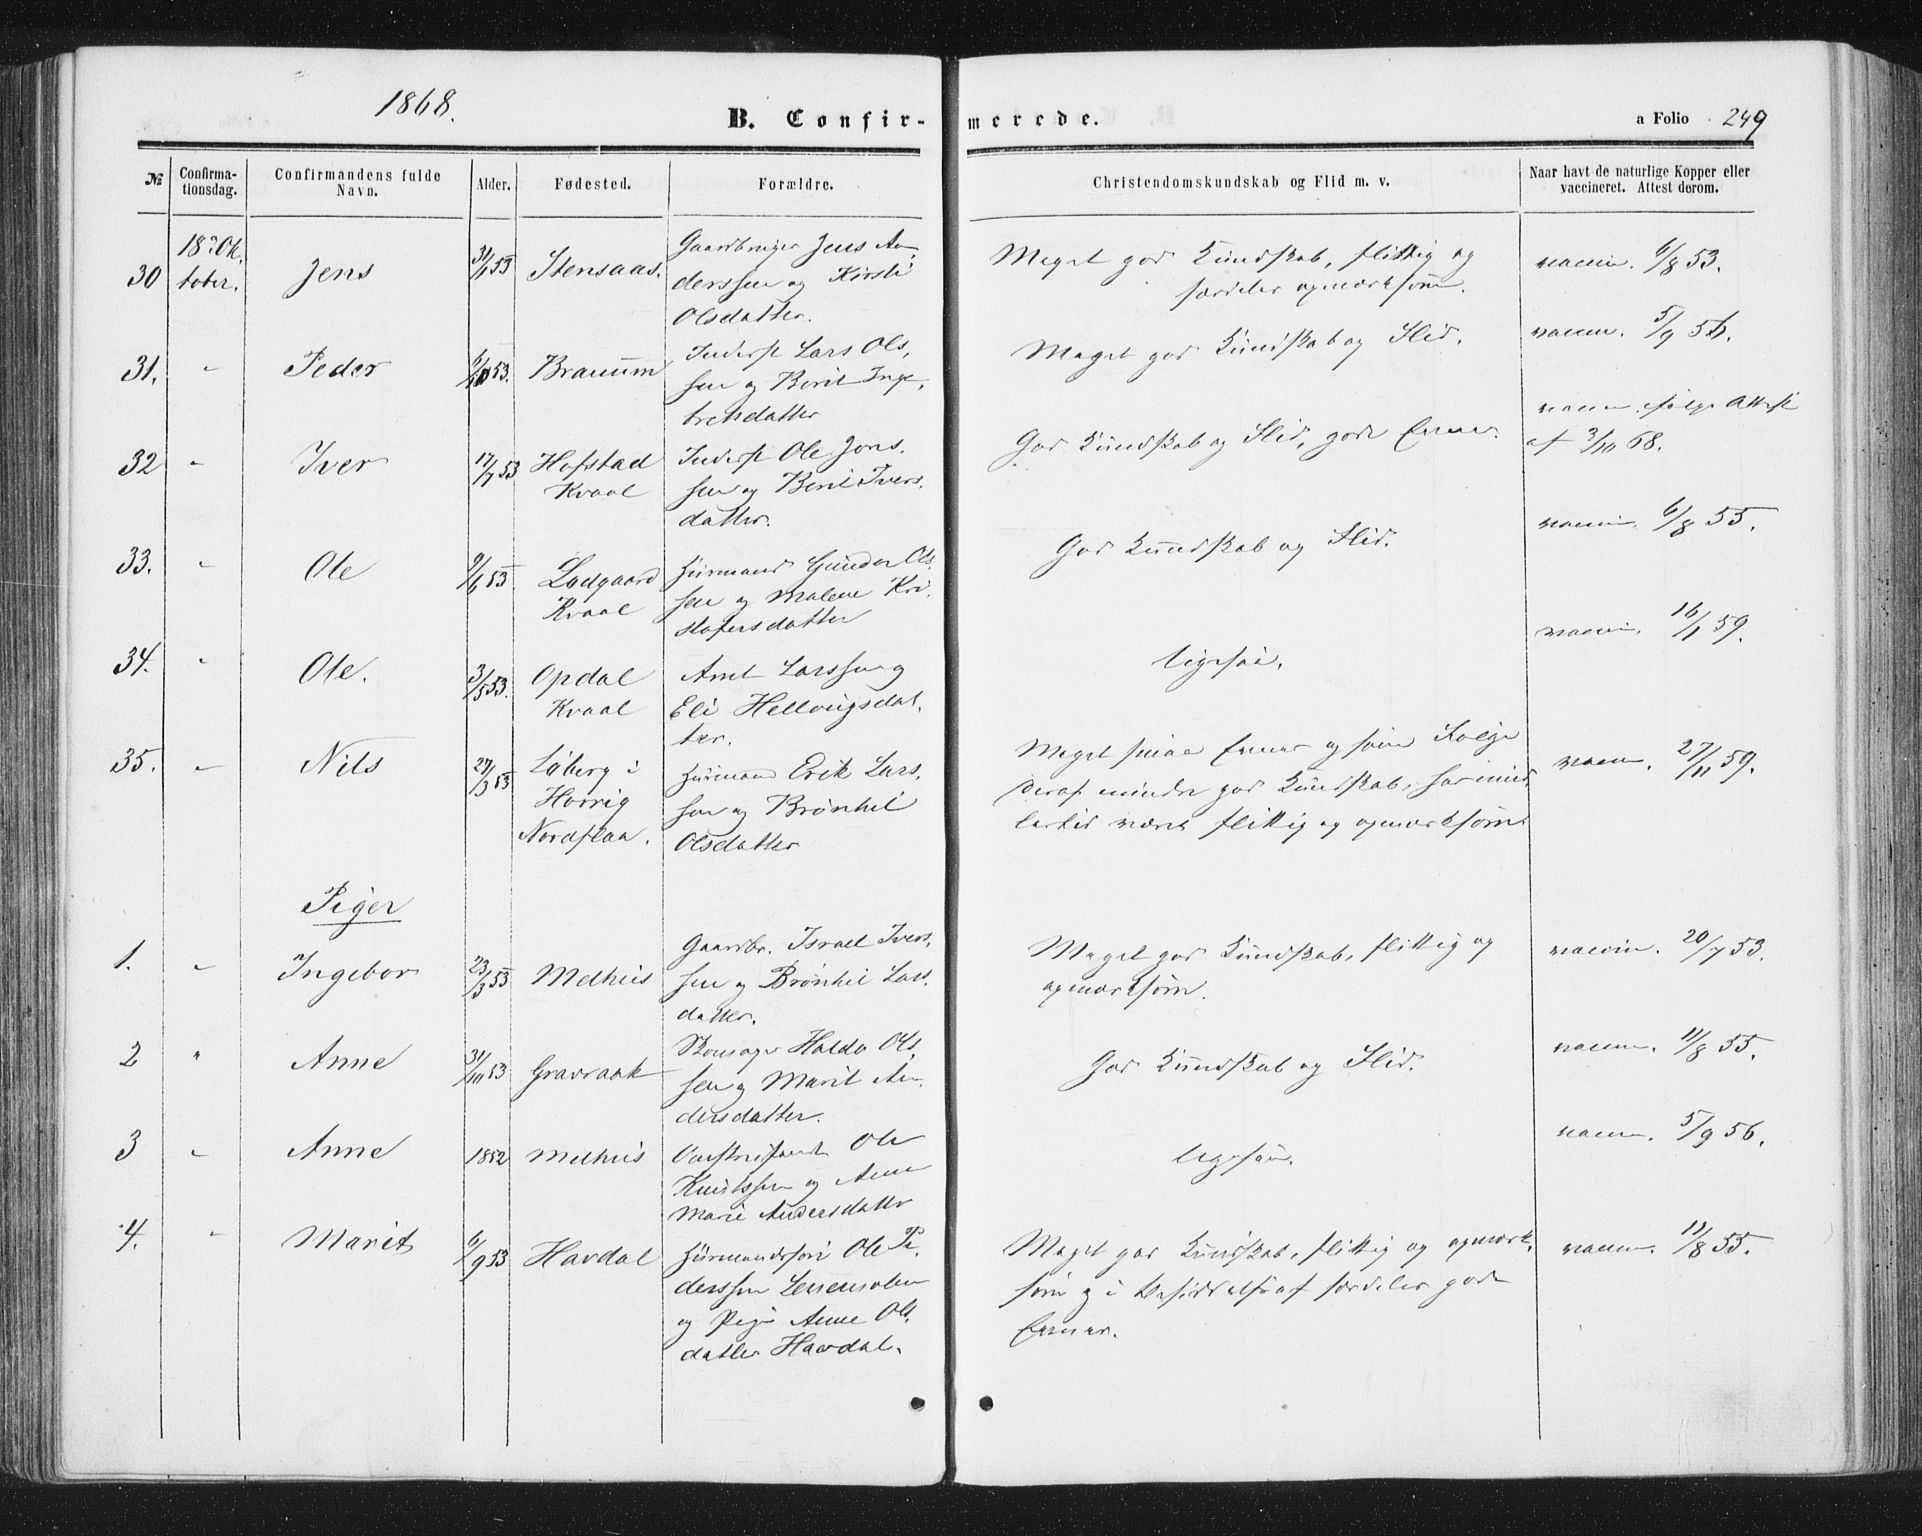 1868.
B. Confirmerede.
a Folio 249
№
Confirmationsdag.
Confirmandens fulde Navn.
Alder.
Fødested.
Forældre.
Christendomskundskab og Flid m. v.
Naar havt de naturlige Kopper eller vaccineret. Attest derom.
30 18de Oktober. Jens 31/1 53 Stensaas. Gaardbruger Jens An-
derssen og Kirsti
Olsdatter.
Meget god Kundskab, flittig og
særdeles opmærksom.
vaccin. 6/8 53.
31. " Peder 6/10 53. Brauum Inderst Lars Ols,
sen og Berit Inge,
bretsdatter
Meget god Kundskab og Flid.
vaccin. 5/9 56.
32 " Iver 17/7 53 Hofstad
Kvaal
Inderst Ole Jons,
sen og Berit Ivers,
datter.
God Kundskab og Flid, gode Evner.
vaccin. ifølge Attest
af 3/10 68.
33. " Ole 9/6 53 Ladgaard
Kvaal
Huusmand Gunder Ols,
sen og Malene Kri,
stofersdatter
God Kundskab og Flid.
vaccin. 6/8 55.
34. " Ole. 3/5 53. Opdal
Kvaal
Arnt Larssen og
Eli Hellvigsdat,
ter.
ligesaa.
vaccin. 16/1 59.
35. " Nils 27/3 53 Løberg i
Horrig
Nordflaa.
Huusmand Erik Lars,
sen og Brønhil
Olsdatter
Meget smaa Evner og som Følge
deraf mindre god Kundskab, har imid,
lertid været flittig og opmærksom
vaccin. 27/11 59.
Piger
1. " Ingebor 23/3 53 Melhuus Gaardbr. Israel Ivers,
sen og Brønhil Lars,
datter.
Meget god Kundskab, flittig og
opmærksom.
vaccin. 20/7 53.
2 " Anne 31/10 53 Gravraak Skomager Haldo Ols,
sen og Marit An,
dersdatter.
God Kundskab og Flid.
vaccin. 11/8 55.
3 " Anne 1852 Melhuus Ole
Knutssen og Anne
Marie Andersdatter
ligesaa.
vaccin. 5/9 56.
4. " Marit 6/9 53 Havdal Huusmandssøn Ole Pe,
derssen
og Pige Anne Ols,
datter Havdal.
Meget god Kundskab, flittig og opmærk,
som og i Besiddelse af særdeles gode
Evner.
vaccin. 11/8 55.